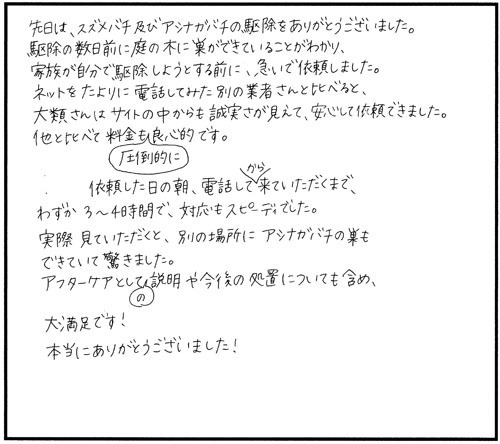 先日は、スズメバチ及びアシナガバチの駆除をありがとうございました。
駆除の数日前に庭の木に巣ができていることがわかり、
家族が自分で駆除しようとする前に、急いで依頼しました。
ネットをたよりに電話してみた別の業者さんと比べると、
大類さんはサイトの中からも誠実さが見えて、安心して依頼できました。
他と比べて料金も良心的です。
圧倒的に
から
依頼した日の朝、電話して来ていただくまで、
わずか3〜4時間で、対応もスピーディでした。
実際見ていただくと、別の場所にアシナガバチの巣も
できていて驚きました。
アフターケアとして説明や今後の処置についても含め、
の
大満足です!
本当にありがとうございました!